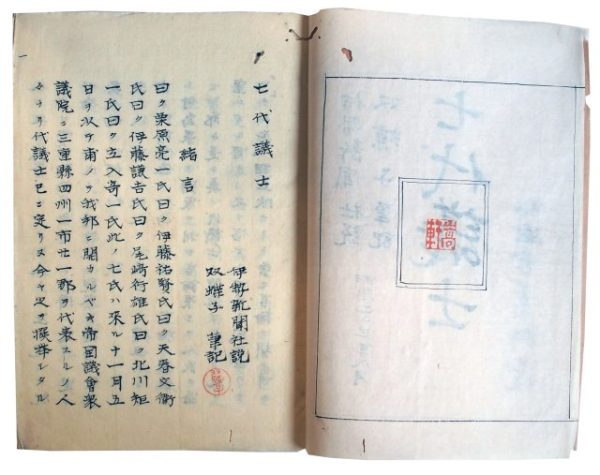 嵩軒
七代議士
伊勢新聞社説
双蝶子 筆記
緒言
曰ク栗原亮一氏曰ク伊藤祐賢氏曰ク天春文衛
氏曰ク伊藤謙吉氏曰ク尾崎行雄氏曰ク北川矩
一氏曰ク立入奇一氏此ノ七氏ハ來ル十一月五
日ヲ以テ甫メテ我邦ニ開カルベキ帝国議會衆
議院ニ三重縣四州一市廿一郡ヲ代表スルノ人
々ナリ代議士已ニ定リヌ今ヤ是ヲ撰挙シタル